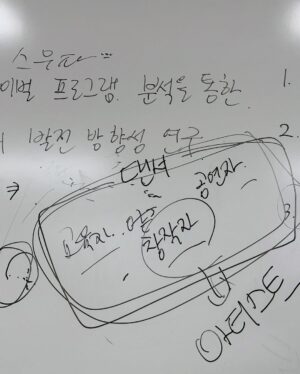 스우파
이벌 프로그램 분석을 통한 1.
발전 방향성 연구 2.
댄서
공연자
교육자
창작자 3
아티스트